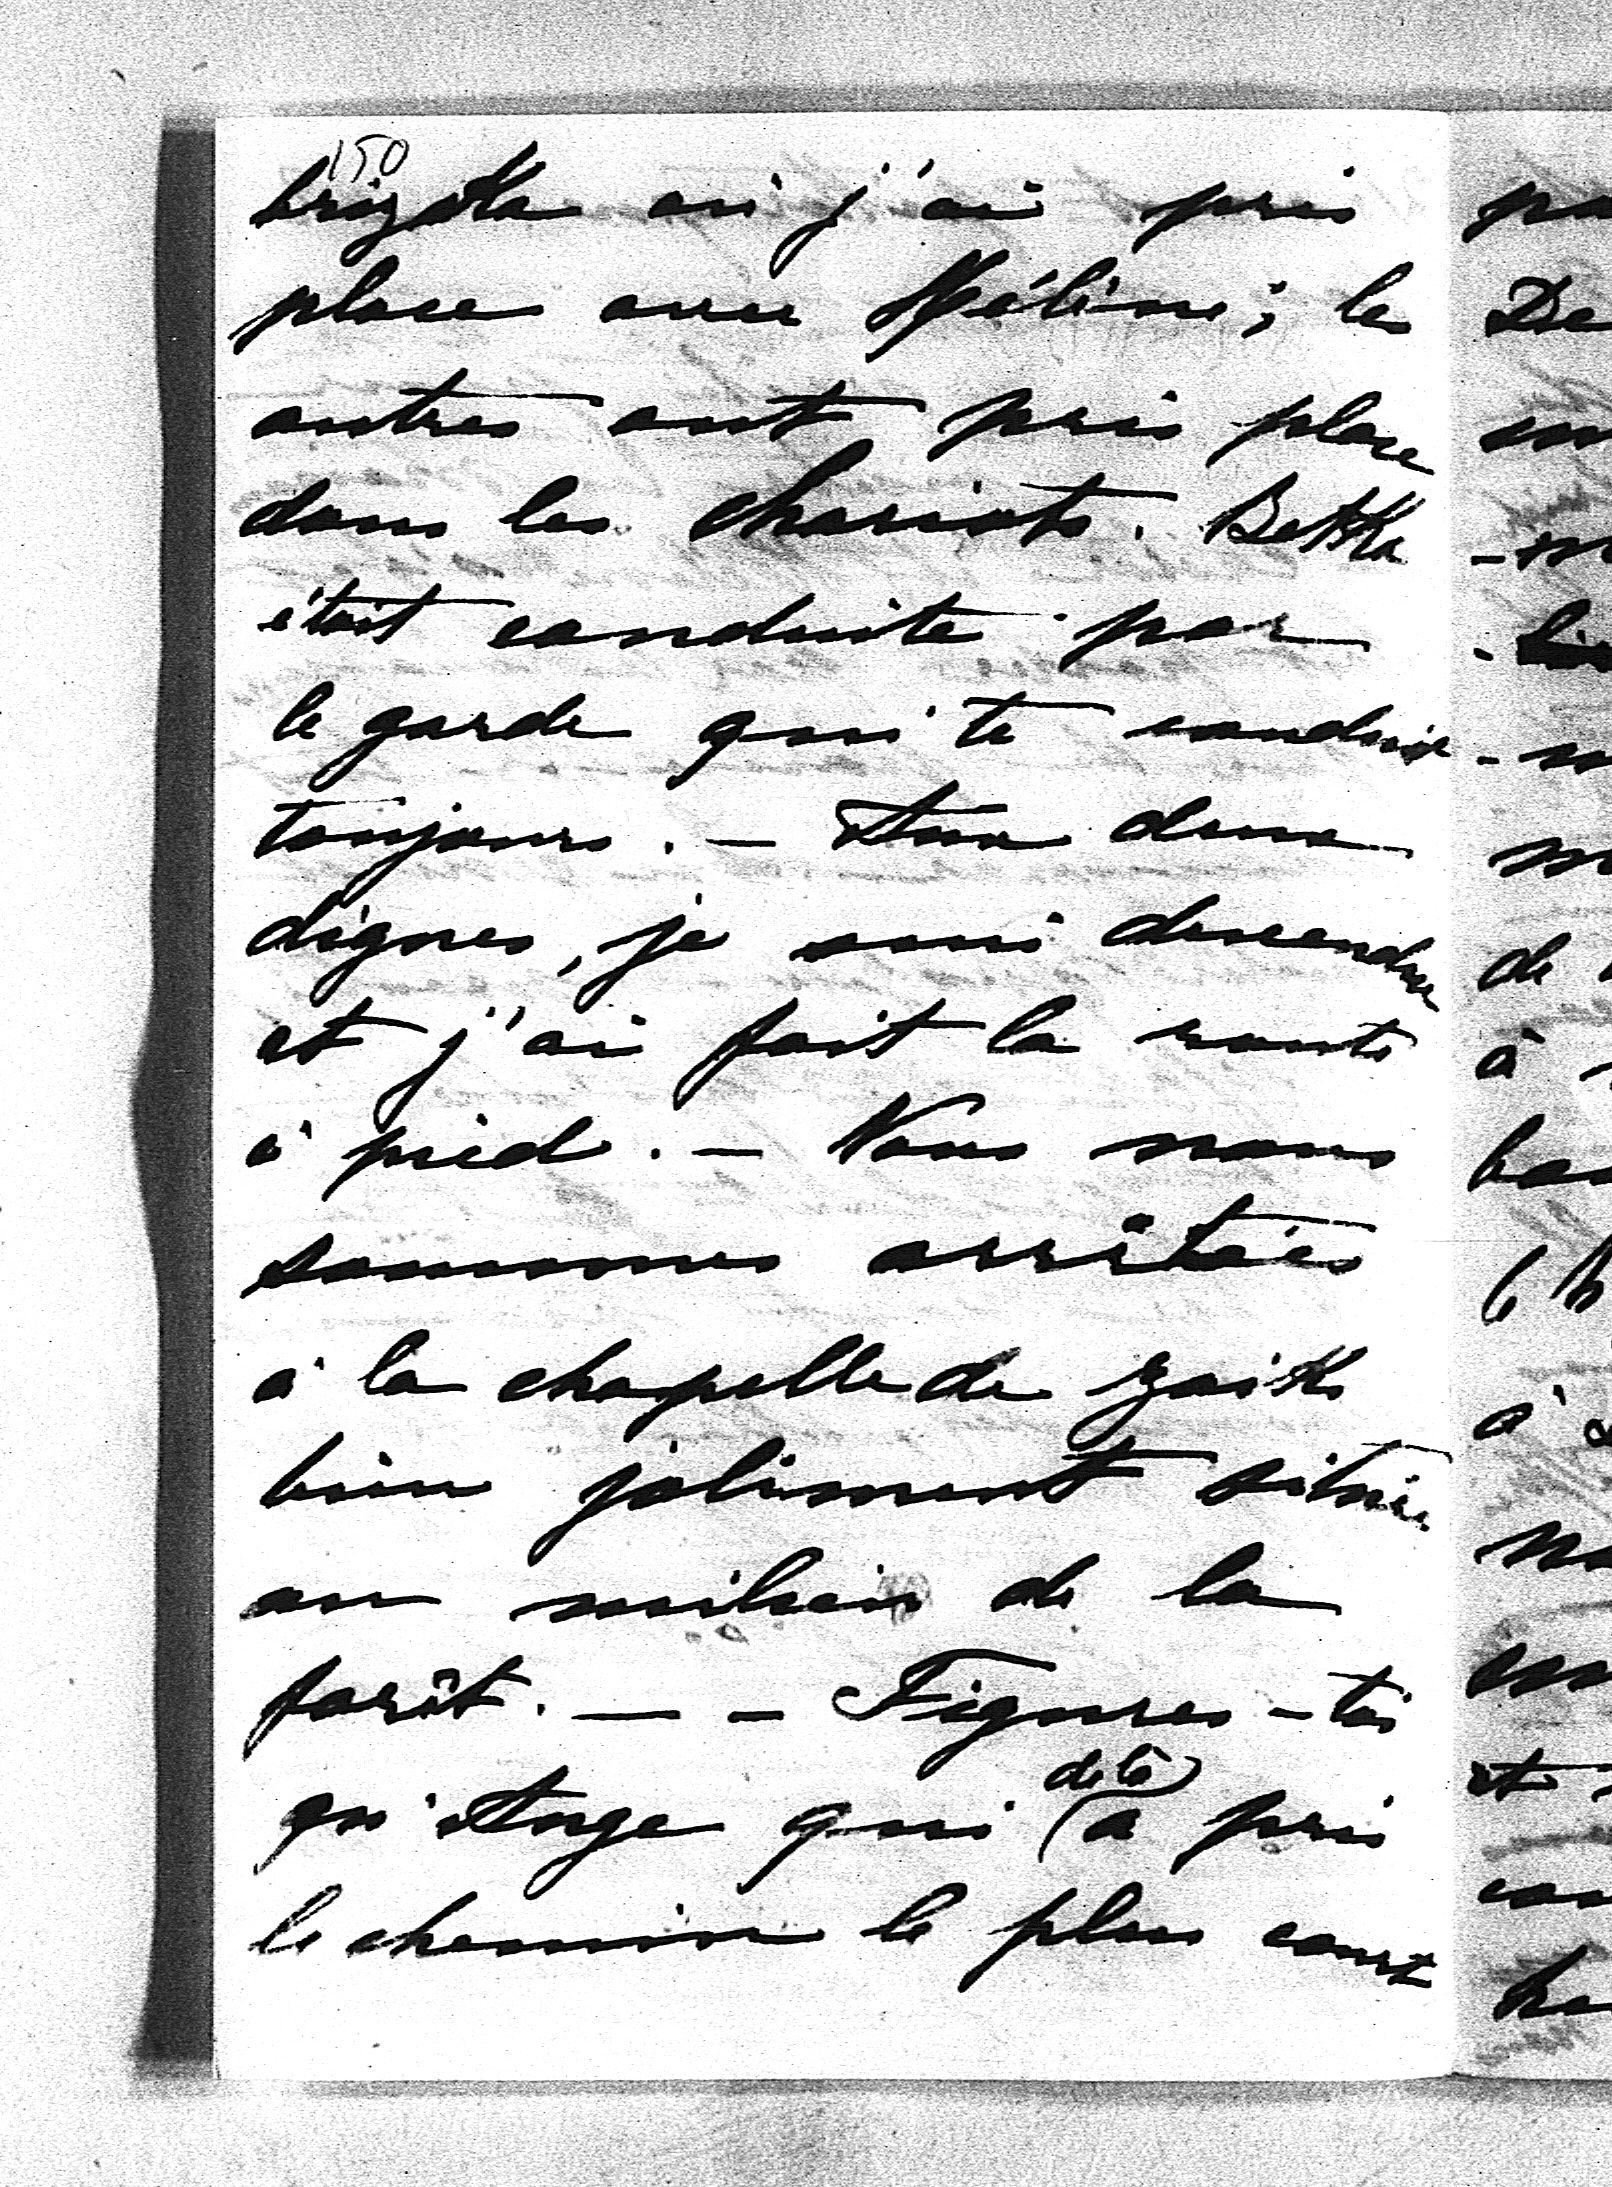 150
brizska où j'ai pris
place avec Hélène ; les
autres ont pris place
dans les chariots. Betka
était conduite par
le garde qui te conduit
toujours. — Aux deux
dignes, je suis descendue
et j'ai fait la route
à pied. — Nous nous
sommes arrêtées
à la chapelle de
bien joliment située
au milieu de la
forêt. — — Figures-toi
qu'Ange qui (de là) a pris
le chemin le plus court